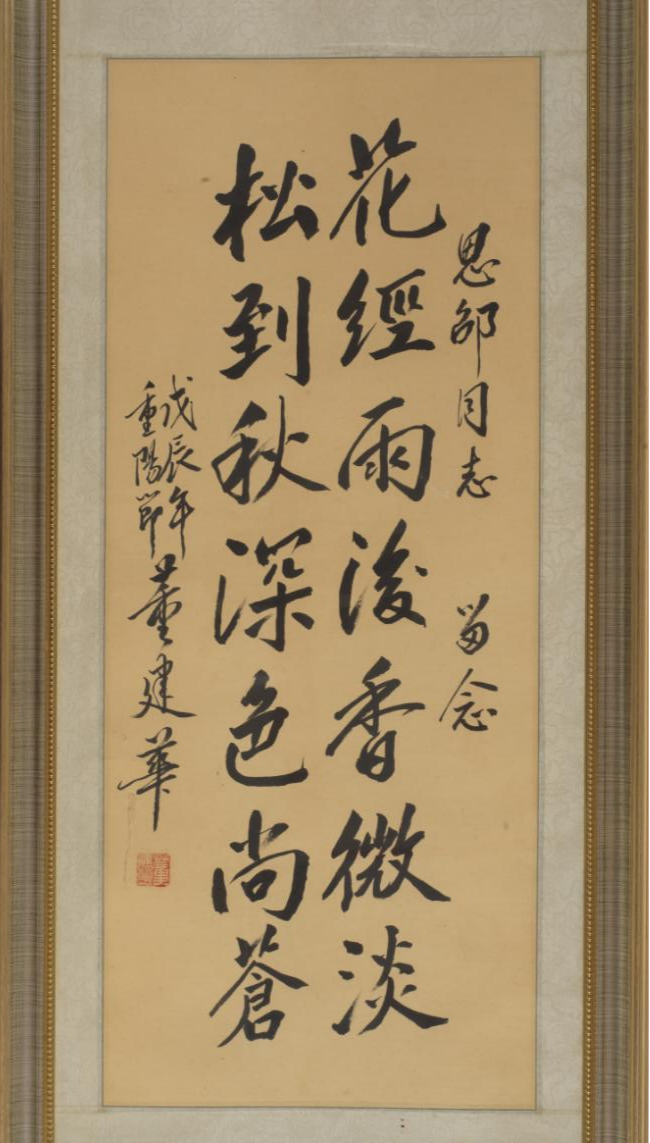 思邰同志 留念
花經雨後香微淡
松到秋深色尚蒼
戊辰年
重陽節
董建華